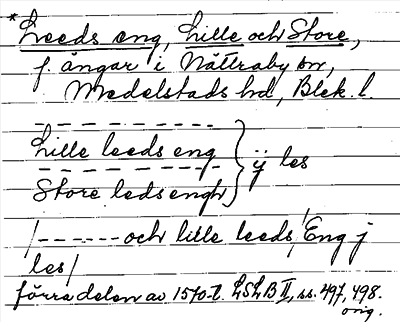 *Leeds eng, Lille och Store,
f. ängar i Nättraby sn,
Medelstads hd, Blek. l.
Lille leeds eng } ij les
Store ledsengh
/------och lille leeds Eng j
les/
förra delen av 1570-t. LSLB II, ss. 497, 498.
orig.